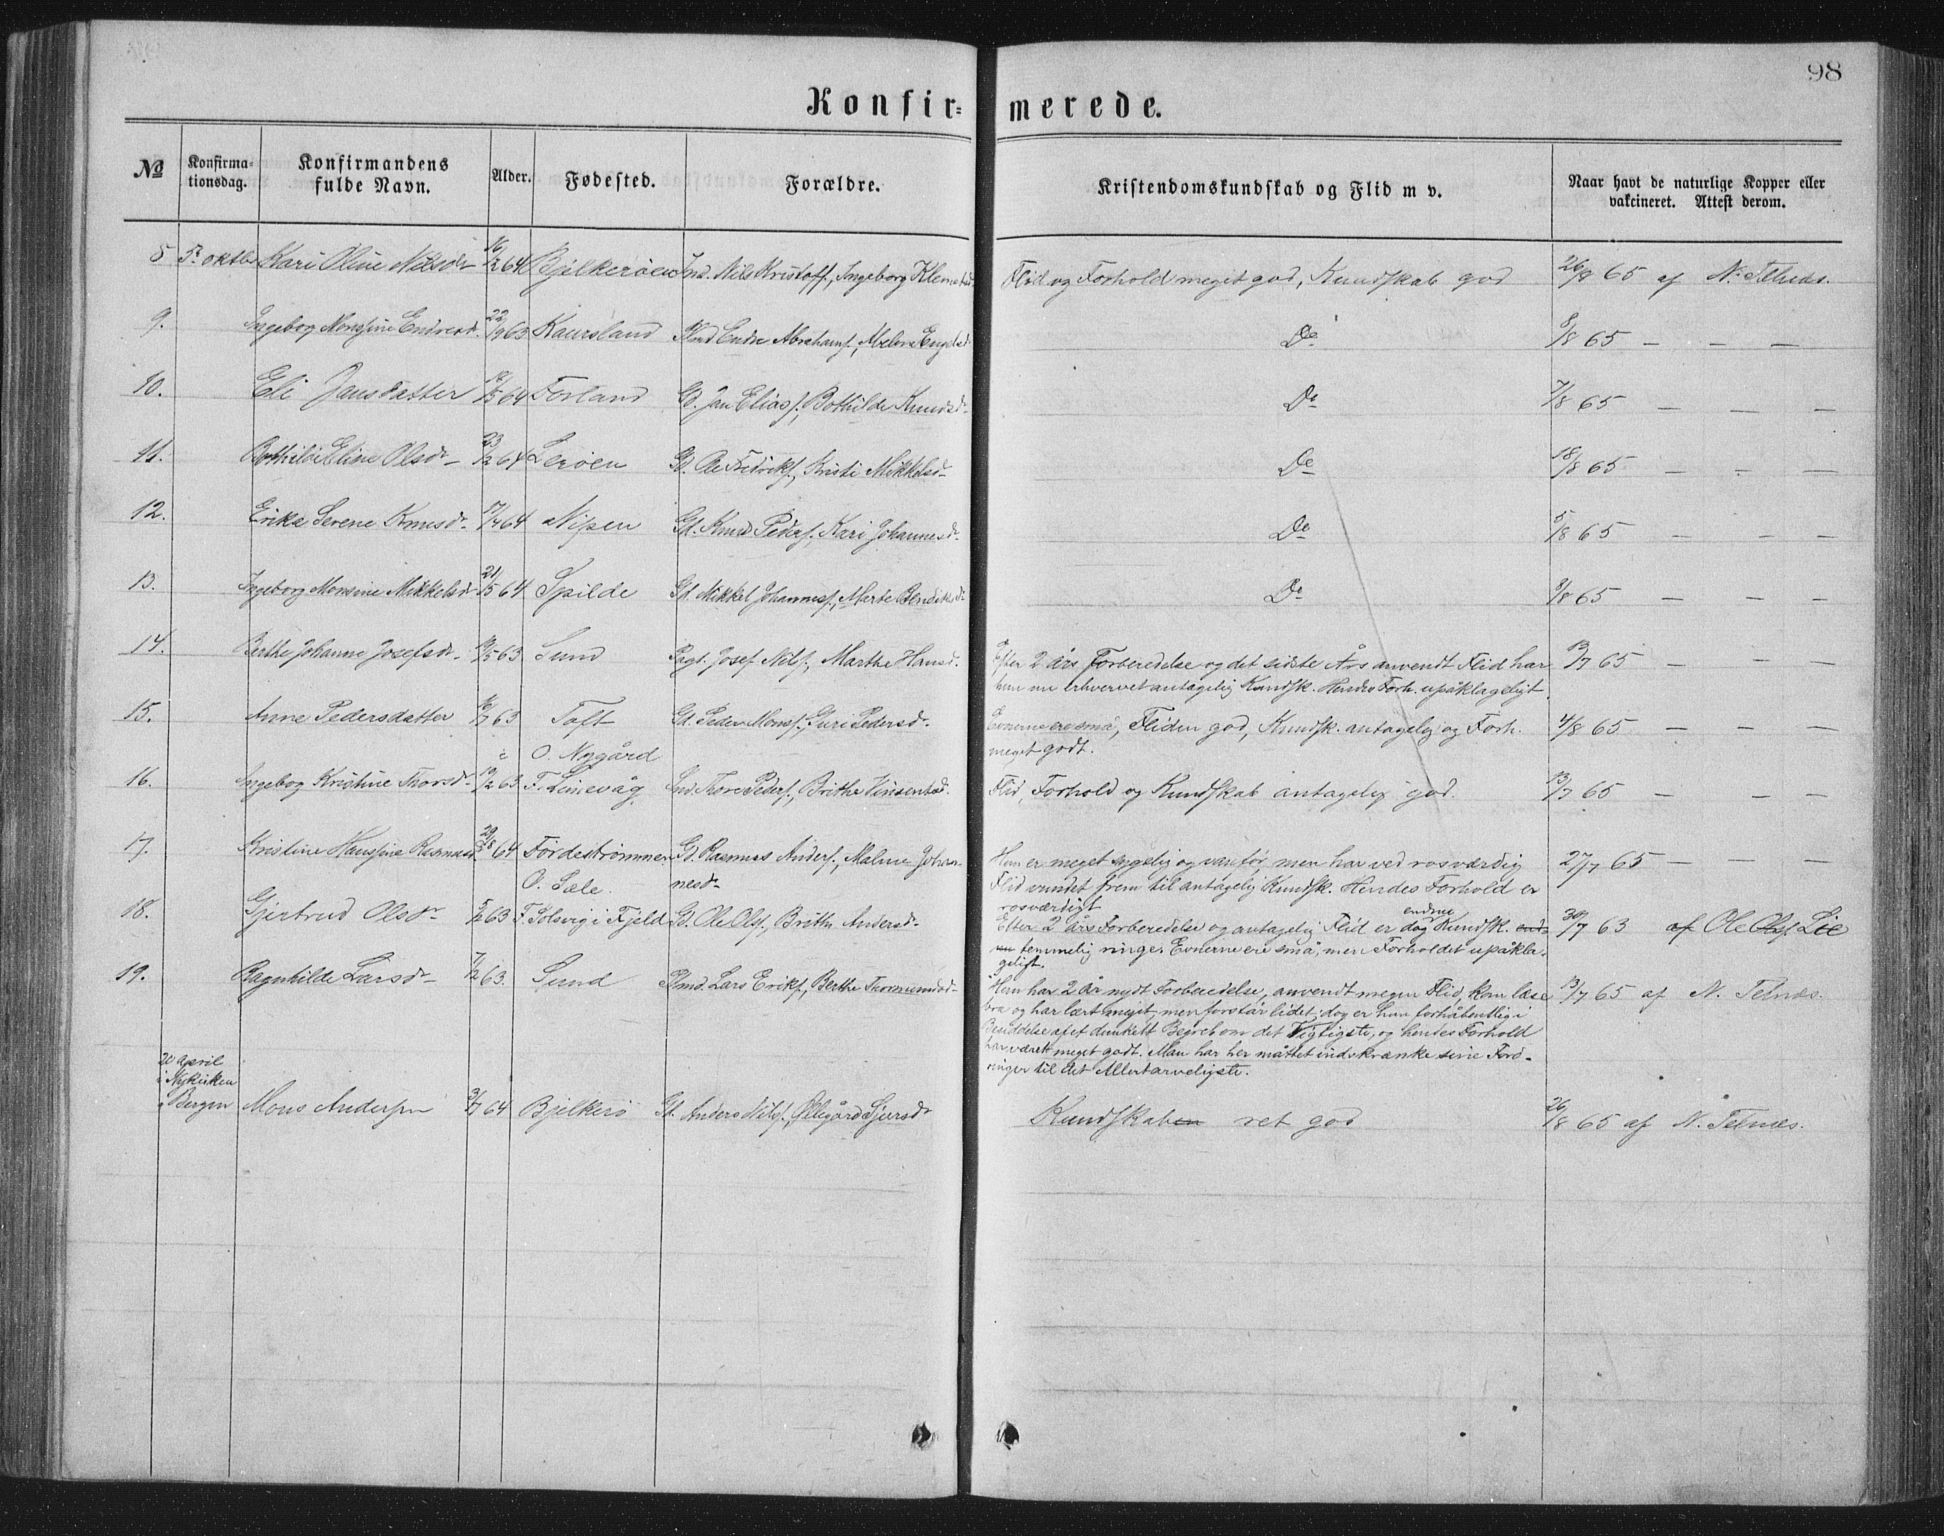 98
Konfir= merede.
№ Konfirma= tionsdag. Konfirmandens fulde Navn. Alder. Fødested. Forældre. Kristendomskundskab og Flid m v. Naar havt de naturlige Kopper eller vakcineret. Attest derom.
8 5te oktbr Kari Oline Nilsdr 16/2 64 Bjelkerøen Ind. Nils Kristoff., Ingeborg Klemetsd. Flid og Forhold meget god, Kundskab god 26/8 65 af N. Telnæs.
9. Ingebog Monsine Endresd. 22/9 63 Kaursland Pmd Endre Abrahams., Engelsd. Do 8/8 65 — — —
10. Eli Jansdatter /5 64 Forland Gd. Jan Elias s., Bothilde Knudsd. Do 7/8 65 — — —
11. Bothilde Eline Olsdr 23/2 64 Lerøen Gd. Ole Fredriks., Kristi Mikkelsd. Do 18/8 65 — — —
12. Erika Serene Knudsd. 7/4 64 Nipen Gd. Knud Peders., Kari Johannesd. Do 5/8 65 — — —
13. Ingeborg Monsine Mikkelsd 21/5 64 Spilde Gd. Mikkel Johanness., Marte Do 9/8 65 — — —
14. Berthe Johanne Josefsd. /5 63 Sund Josef Nils., Marthe Hansd. Efter 2 års Forberedelse og det sidste Års anvendt Flid har
hun nu erhvervet antagelig Kundsk. Hendes Forh. upåklageligt. /7 65 — — —
15. Anne Pedersdatter 63 Toft Gd. Peder Mons., Guri Pedersd. Evnerne ere små, Fliden god, Kundsk. antagelig og Forh.
meget godt. 4/8 65 — — —
16. Ingebog Kristine Thorsd. 19/2 63 O. Nygård
F. Linevåg Ind. Thore Peders., Brithe Vinsentsd. Flid, Forhold og Kundskab antagelig god. 13/7 65 — — —
17. Kristine Hansine Rasmusd. 29/8 64 Fordestrømmen Gd. Rasmus Anders., Malene Johan-
nesd. Hun er meget sygelig og vanfør, men har ved rosværdig
Flid vundet frem til antagelig Kundsk. Hendes Forhold er
rosværdigt 27/7 65 — — —
18. Gjertrud Olsdr 63 O. Sæle.
F. Solsvig i Fjeld Gd. Ole Ols., Brithe Andersd. Efter 2 års Forberedelse og antagelig Flid er dog endnu Kundsk.
temmelig ringe. Evnerne ere små, men Forholdet upåkla-
geligt. 30/7 63 af Ole Ols. Lie
19. Ragnhilde Larsdr 7/12 63. Sund Pmd. Lars Eriks., Berthe Thormundsd. Hun har 2 år nydt Forberedelse, anvendt megen Flid, kan læse
bra og har lært meget, men forstår lidet; dog er hun forhåbentlig i
Besiddelse af et dunkelt Begreb om det Vigtigste, og hendes Forhold
har været meget godt. Man har her måttet indskrænke sine Ford-
ringer til det Allertarveligste. 13/7 65 af N. Telnæs.
20 april
i Nykirken
i Bergen Mons Andersen 3/7 64 Bjelkerø Gd. Anders Nils., Ollegård Sjursdr Kundskaben ret god 26/8 65 af N. Telnæs.